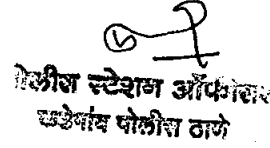 पोलीस स्टेशन ऑफीसर
वडेगांव पोलीस ठाणे